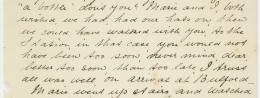 "a 'bother' dont you? Marie and I, both
wished we had, had our hats on, then we
could have walked with you. As the
in that case you would not
have been too soon never mind, dear
better too soon than too late I trust
all was well on arrival at Bulford.
Marie went up stairs and watched